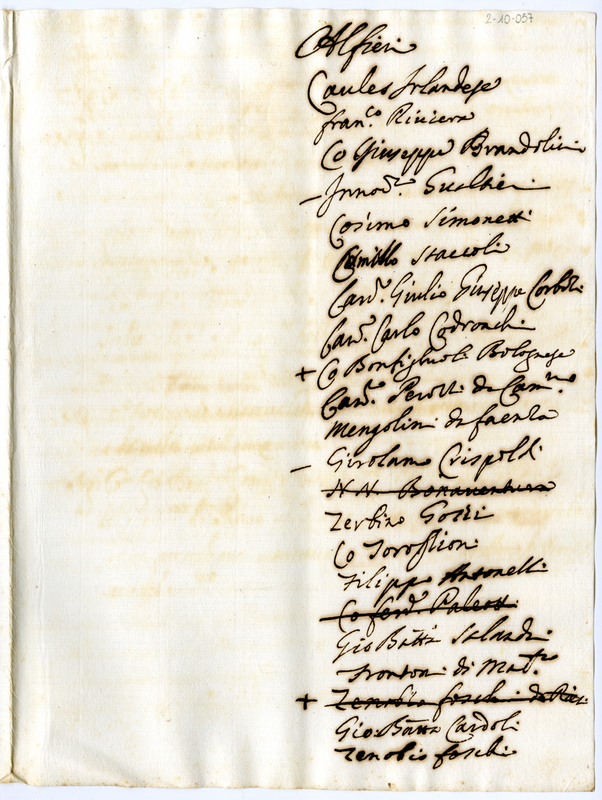 2-10-057
Alfieri
Caules Irlandese
fran.co Riviera
Co Giuseppe Brandolini
– Innoc.o Gualtieri
Cosimo Simonetti
Camillo Staccoli
Cav.r Giulio Giuseppe Corboli
Cav.r Carlo Codronchi
+ Co Bonfigliuoli Bolognese
Cav.r Perotti da Cam.no
Mengolini da faenza
– Girolamo Crispoldi
N. N. Bonaventura
Zerbino Gozzi
Co
Filippo Antonelli
Co ferd.o Paleotti
Gio Batta
di Mat.ca
+ Zenobio foschi da
Gio: Batta Cardoli
Zenobio foschi